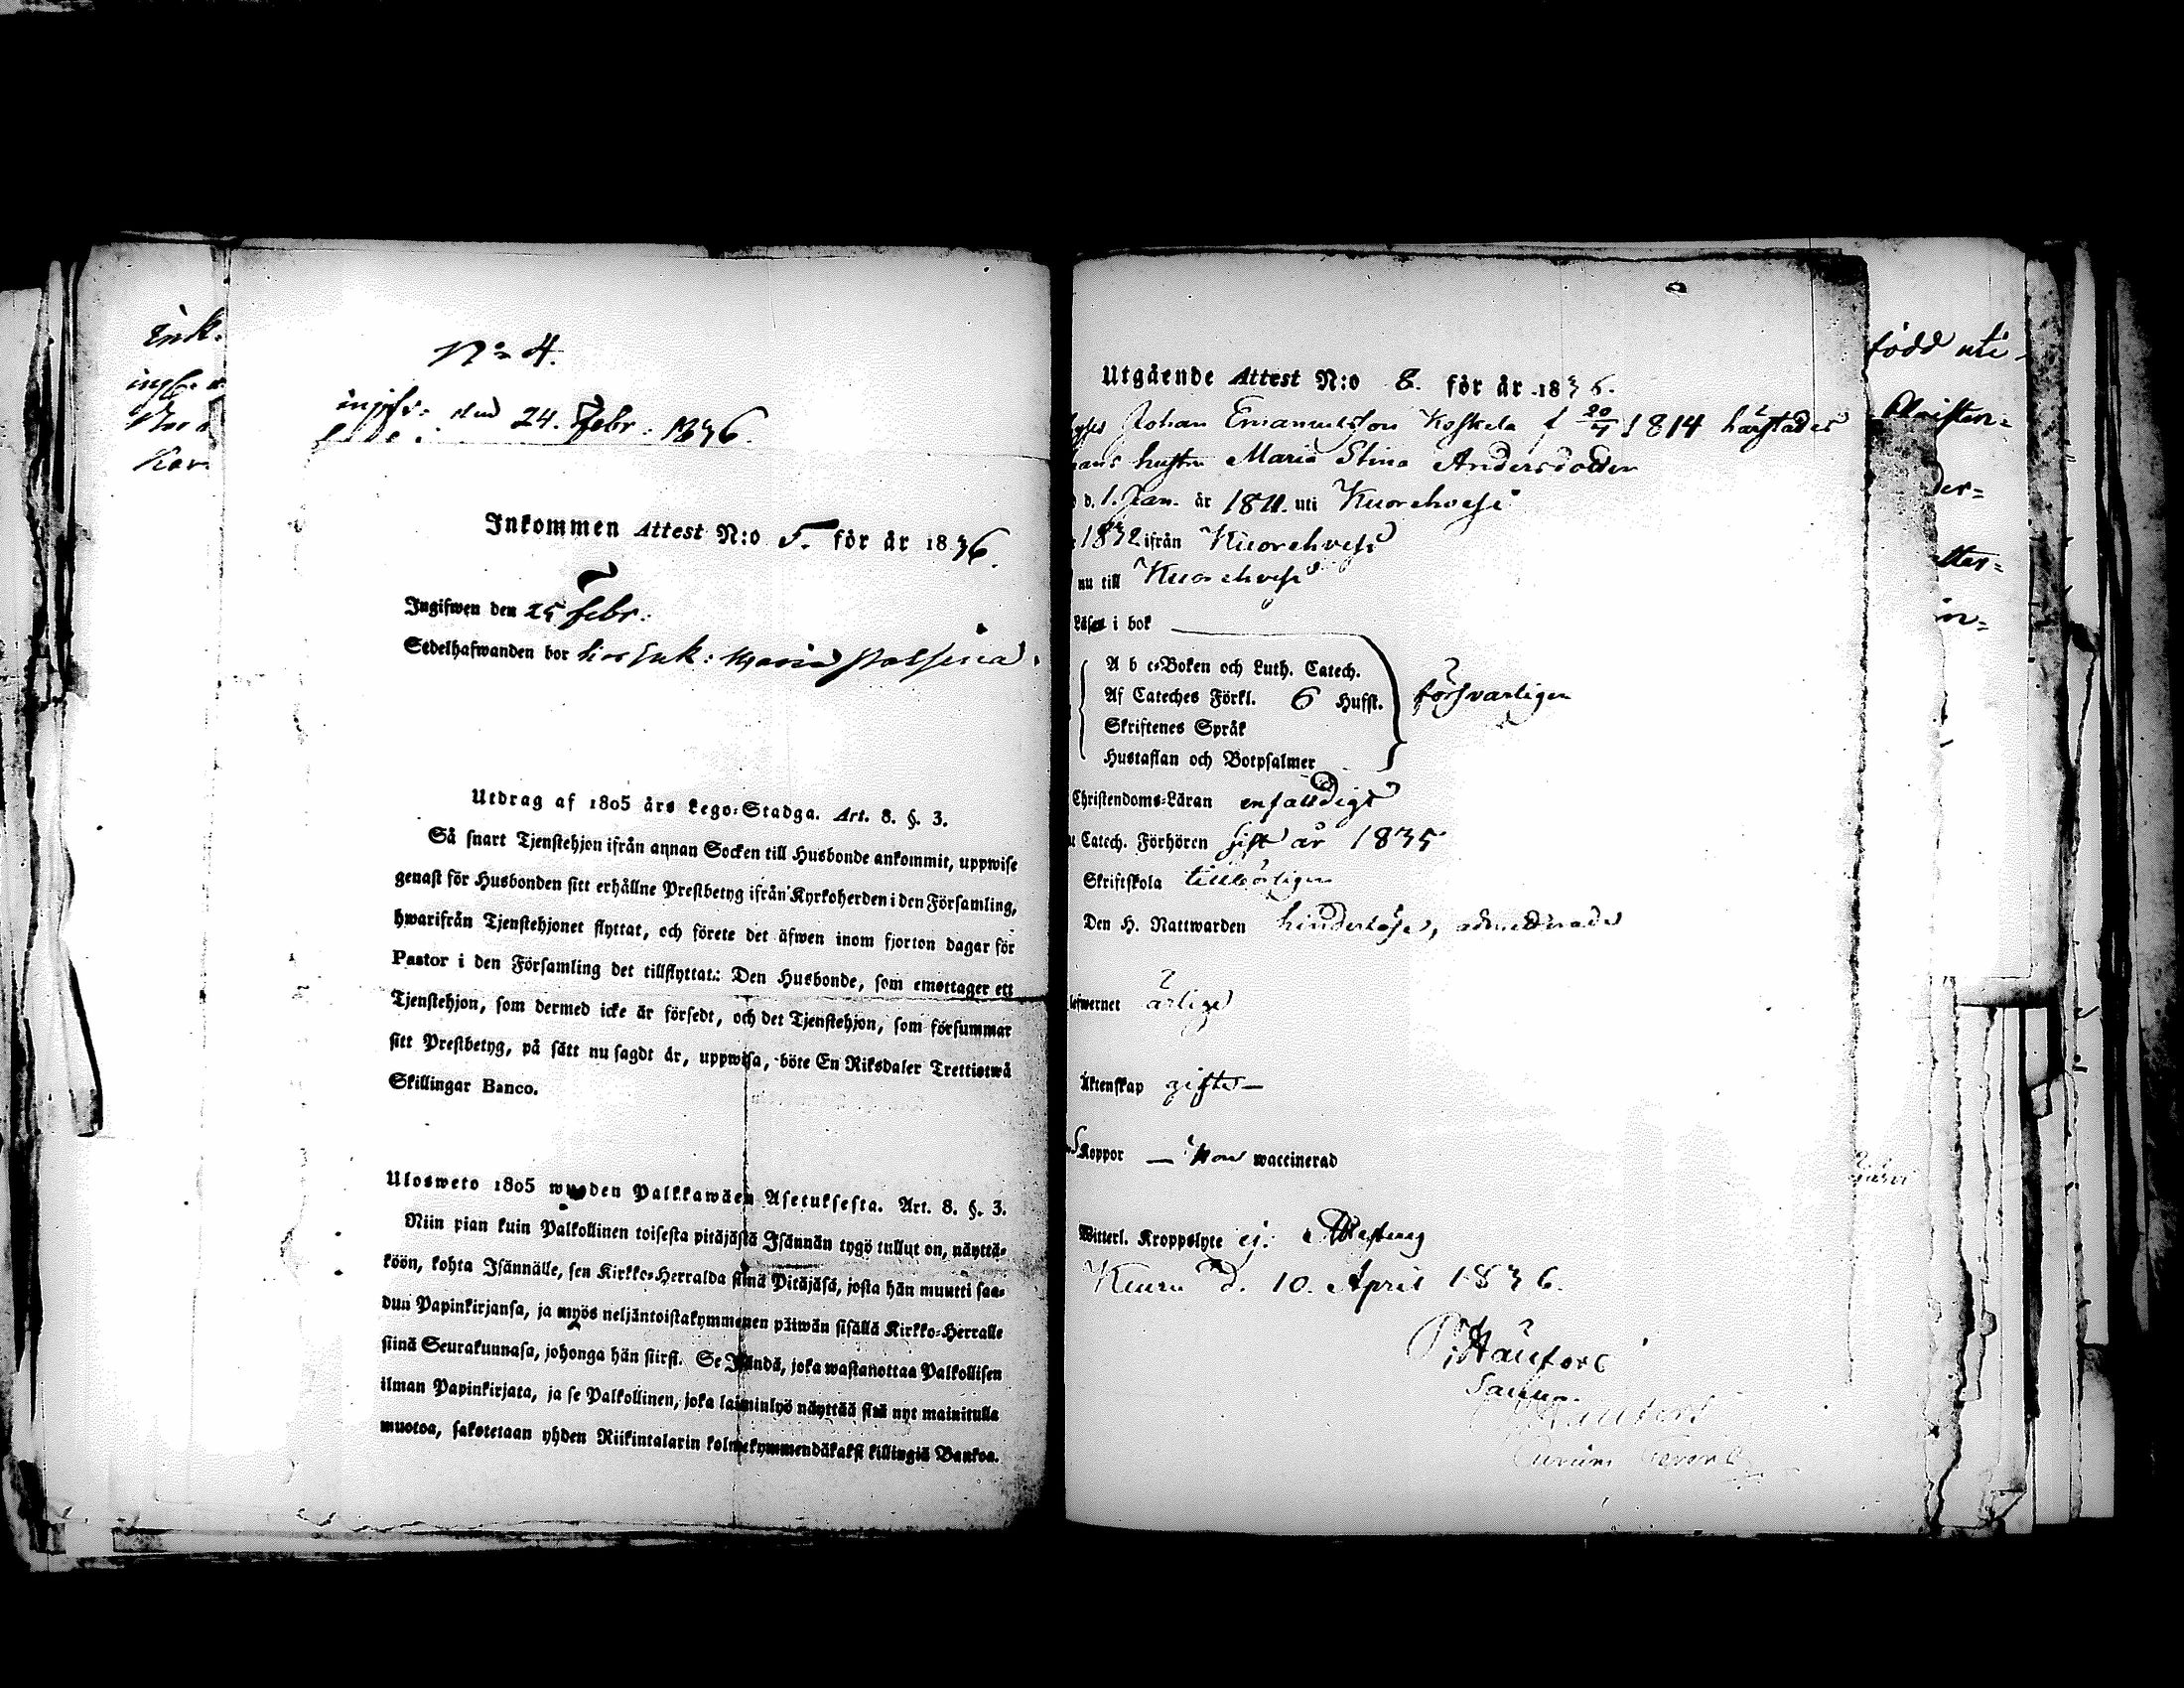 Enk.
N:o 4.
ingifv: den 24. Febr. 1836.
Inkommen Attest N:o 5. för år 1836.
Ingifwen den 25 Febr.
Sedelhafwanden bor hos Enk: Maria
Utdrag af 1805 års Lego-Stadga. Art. 8. §. 3.
Så snart Tjenstehjon ifrån annan Socken till Husbonde ankommit, uppwise
genast för Husbonden sitt erhållne Prestbetyg ifrån Kyrkoherden i den Församling,
hwarifrån Tjenstehjonet flyttat, och förete det äfwen inom fjorton dagar för
Pastor i den Församling det tillflyttat.: Den Husbonde, som emottager ett
Tjenstehjon, som dermed icke är försedt, och det Tjenstehjon, som försummar
sitt Prestbetyg, på sätt nu sagdt är, uppwisa, böte En Riksdaler Trettiotwå
Skillingar Banco.
Ulosweto 1805 wuoden Palkkawäen Asetuksesta. Art. 8. §. 3.
Niin pian kuin Palkollinen toisesta pitäjästä Isännän tygö tullut on, näyttä-
köön, kohta Isännälle, sen Kirkko-Herralda siinä Pitäjäsä, josta hän muutti saa-
dun Papinkirjansa, ja myös neljäntoistakymmenen päiwän sisällä Kirkko-Herralle
siinä Seurakunnasa, johonga hän siirsi. Se Isändä, joka wastanottaa Palkollisen
ilman Papinkirjata, ja se Palkollinen, joka laiminlyö näyttää sitä nyt mainitulla
muotoa, sakotetaan yhden Riikintalarin kolmekymmendäkaksi killingiä Bankoa.
Utgående Attest N:o 8. för år 1836.
Johan Emanuelsson Koskela f 20/4 1814 härstädes
hans hustru Maria Stina Andersdotter
d. 1. Jan. år 1811. uti Kuorehvesi
1832 ifrån Kuorehvesi
nu till Kuorehvesi
Läser i bok
A b c-Boken och Luth. Catech.
Af Cateches Förkl. 6 Hufst. försvarligen
Skriftenes Språk
Hustaflan och Botpsalmer
Christendoms-Läran enfaldigt
Catech. Förhören sist år 1835
Skriftskola tillbörligen
Den H. Nattwarden hinderlöse, admitterade
lefwernet ärlige
Äktenskap gifte —
Koppor — hon waccinerad
Witterl. Kroppslyte ej. Attesterar
Kuru d. 10. April 1836.
född uti
Christen-
der-